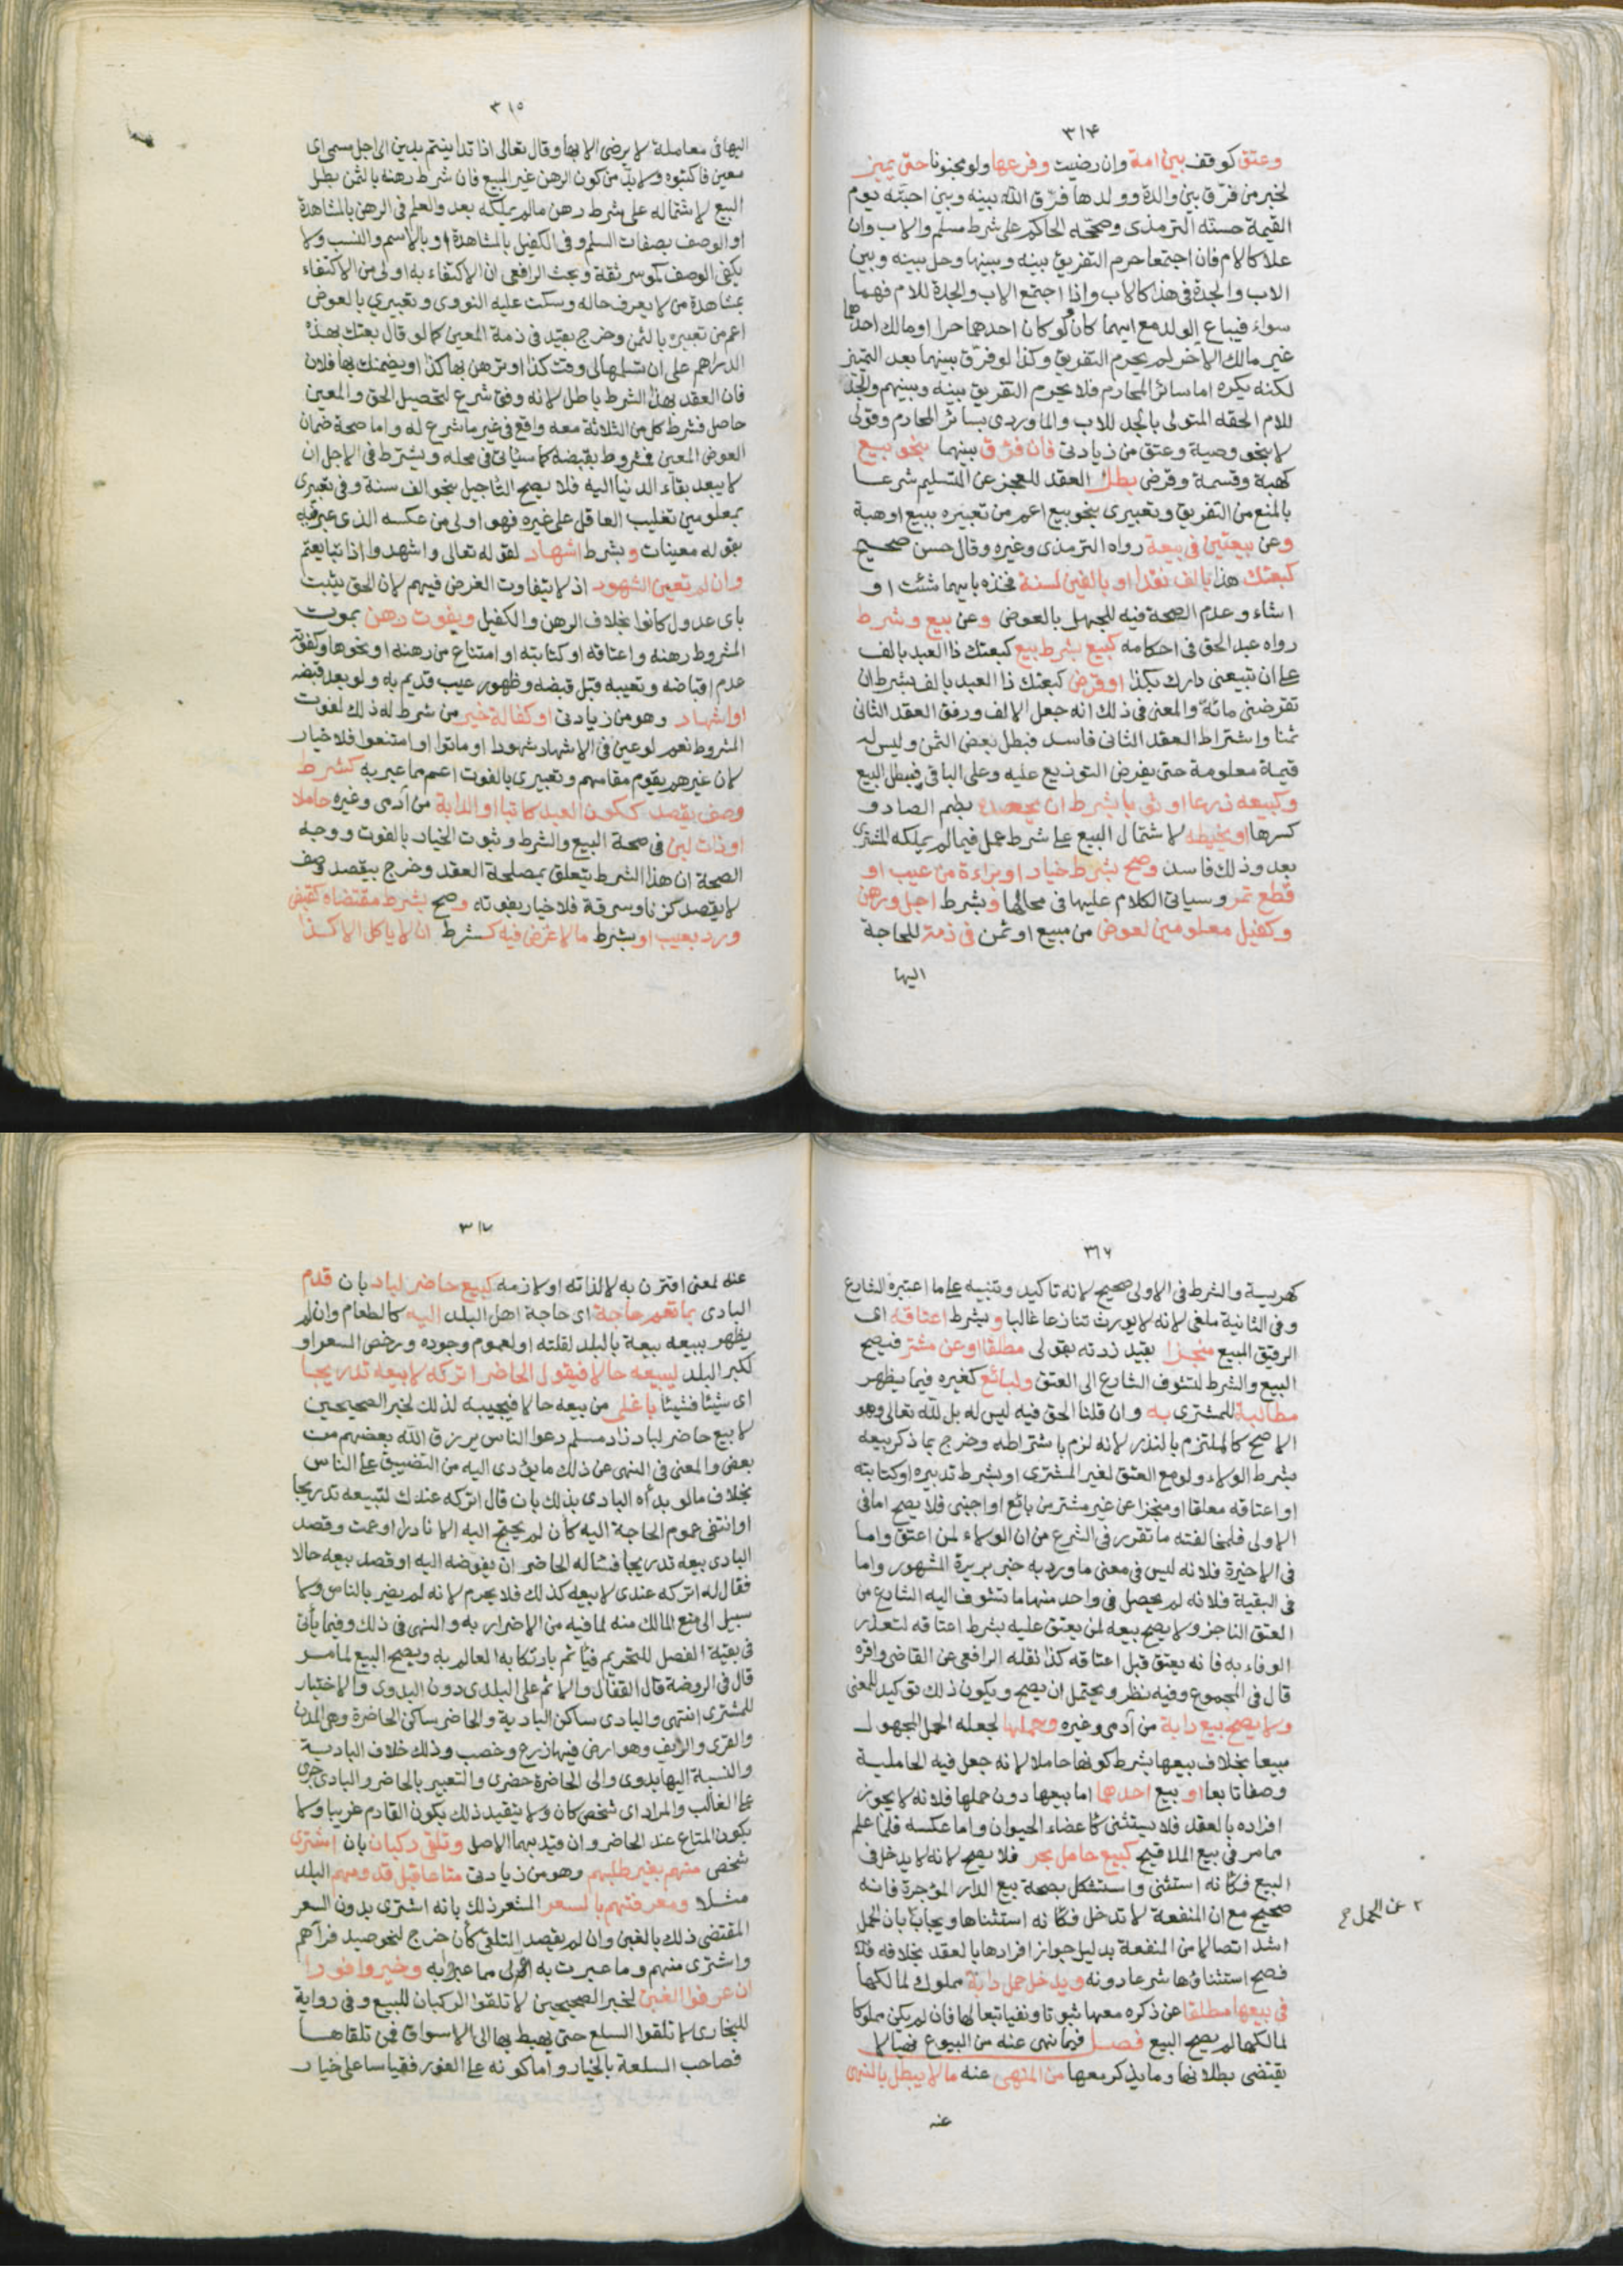 ٣١۴
وعتق كوقف بين امة وان رضيت وفرعها ولو مجنونا حتى يميز
لخبر من فرّق بين والدة وولدها فرّق الله بينه وبين احبته يوم
القيمة حسنه الترمذى وصححه الحاكم على شرط مسلم والاب وان
علا كالام فان اجتمعا حرم التفريق بينه وبينها وحل بينه وبين
الاب والجدة فى هذا كالاب واذا اجتمع الاب والجدة للام فهما
سواء فيباع الولد مع ايهما كان ولو كان احدهما حرا او مالك احدهما
غير مالك الاخر لم يحرم التفريق وكذا لو فرّق بينهما بعد التميز
لكنه يكره اما سائر المحارم فلا يحرم التفريق بينه وبينهم والجد
للام الحقه المتولى بالجد للاب والماوردى بسائر المحارم وقولى
لا بنحو وصية وعتق من زيادتى فان فرّق بينهما بنحو بيع
كهبة وقسمة وقرض بطل العقد للعجز عن التسليم شرعا
بالمنع من التفريق وتعبيرى بنحو بيع اعم من تعبيره ببيع او هبة
وعن بيعتين فى بيعة رواه الترمذى وغيره وقال حسن صحيح
كبعتك هذا بالف نقدا او بالفين لسنة فخذه بايهما شئت او
اشاء وعدم الصحة فيه للجهل بالعوض وعن بيع وشرط
رواه عبد الحق فى احكامه كبيع بشرط بيع كبعتك ذا العبد بالف
على ان تبيعنى دارك بكذا او قرض كبعتك ذا العبد بالف بشرط ان
تقرضنى مائة والمعنى فى ذلك انه جعل الالف ورفق العقد الثانى
ثمنا واشتراط العقد الثانى فاسد فبطل بعض الثمن وليس له
قيمة معلومة حتى يفرض التوزيع عليه وعلى الباقى فبطل البيع
وكبيعه زرعا او ثوبا بشرط ان يحصده بضم الصاد و
كسرها او يخيطه لاشتمال البيع على شرط عمل فيما لم يملكه المشترى
بعد وذلك فاسد وصح بشرط خيار او براءة من عيب او
قطع ثمر وسياتى الكلام عليها فى محالها وبشرط اجل ورهن
وكفيل معلومين لعوض من مبيع او ثمن فى ذمة للحاجة
اليها
٣١٥
اليها فى معاملة لا يرضى الا بها وقال تعالى اذا تداينتم بدين الى اجل مسمى اى
معين فاكتبوه ولا بدّ من كون الرهن غير المبيع فان شرط رهنه بالثمن بطل
البيع لاشتماله على شرط رهن ما لم يملكه بعد والعلم فى الرهن بالمشاهدة
او الوصف بصفات السلم وفى الكفيل بالمشاهدة او بالاسم والنسب ولا
يكفى الوصف كموسر ثقة وبحث الرافعى ان الاكتفاء به اولى من الاكتفاء
بمشاهدة من لا يعرف حاله وسكت عليه النووى وتعبيرى بالعوض
اعم من تعبيره بالثمن وخرج بقيد فى ذمة المعين كما لو قال بعتك بهذه
الدراهم على ان تسلمها لى وقت كذا او ترهن بها كذا او يضمنك بها فلان
فان العقد بهذا الشرط باطل لانه وفق شرع لتحصيل الحق والمعين
حاصل فشرط كل من الثلاثة معه واقع فى غير ما شرع له واما صحة ضمان
العوض المعين فمشروط بقبضه كما سياتى فى محله ويشترط فى الاجل ان
لا يبعد بقاء الدنيا اليه فلا يصح التاجيل بنحو الف سنة وفى تعبيرى
بمعلومين تغليب العاقل على غيره فهو اولى من عكسه الذى عبر فيه
بقوله معينات وبشرط اشهاد لقوله تعالى واشهدوا اذا تبايعتم
وان لم تعين الشهود اذ لا يتفاوت الغرض فيهم لان الحق يثبت
باى عدول كانوا بخلاف الرهن والكفيل وبفوت رهن بموت
المشروط رهنه واعتاقه او كتابته او امتناع من رهنه او نحوها وكفوته
عدم اقباضه وتعيبه قبل قبضه وظهور عيب قديم به ولو بعد قبضه
او اشهاد وهو من زيادتى او كفالة خير من شرط له ذلك لفوت
المشروط نعم لو عين فى الاشهاد شهودا او ماتوا او امتنعوا فلا خيار
لان غيرهم يقوم مقامهم وتعبيرى بالفوت اعم مما عبر به كشرط
وصف يقصد ككون العبد كاتبا او الدابة من آدمى وغيره حاملا
او ذات لبن فى صحة البيع والشرط وثبوت الخيار بالفوت ووجه
الصحة ان هذا الشرط يتعلق بمصلحة العقد وخرج بيقصد وصف
لا يقصد كزنا وسرقة فلا خيار بفوته وصح بشرط مقتضاه كقبض
ورد بعيب او بشرط ما لا غرض فيه كشرط ان لا ياكل الا كذا
٣١٦
كهريسة والشرط فى الاولى صحيح لانه تاكيد وتنبيه على ما اعتبره الشارع
وفى الثانية ملغى لانه لا يورث تنازعا غالبا وبشرط اعتاقه اى
الرقيق المبيع منجزا بقيد زدته بقولى مطلقا او عن مشتر فيصح
البيع والشرط لتشوف الشارع الى العتق ولبائع كغيره فيما يظهر
مطالبة للمشترى به وان قلنا الحق فيه ليس له بل لله تعالى وهو
الاصح كالملتزم بالنذر لانه لزم باشتراطه وخرج بما ذكر بيعه
بشرط الولاء ولو مع العتق لغير المشترى او بشرط تدبيره او كتابته
او اعتاقه معلقا او منجزا عن غير مشتر من بائع او اجنبى فلا يصح اما فى
الاولى فلمخالفته ما تقرر فى الشرع من ان الولاء لمن اعتق واما
فى الاخيرة فلانه ليس فى معنى ما ورد به خبر بريرة المشهور واما
فى البقية فلانه لم يحصل فى واحد منها ما تشوف اليه الشارع من
العتق الناجز ولا يصح بيعه لمن يعتق عليه بشرط اعتاقه لتعذر
الوفاء به فانه يعتق قبل اعتاقه كذا نقله الرافعى عن القاضى واقره
قال فى المجموع وفيه نظر ويحتمل ان يصح ويكون ذلك توكيدا للمعنى
ولا يصح بيع دابة من آدمى وغيره وحملها لجعله الحمل المجهول
مبيعا بخلاف بيعها بشرط كونها حاملا لانه جعل فيه الحاملية
وصفا تابعا او بيع احدهما اما بيعها دون حملها فلانه لا يجوز
افراده بالعقد فلا يستثنى كاعضاء الحيوان واما عكسه فلما علم
مما مر فى بيع الملاقيح كبيع حامل بحر فلا يصح لانه لا يدخل فى
البيع فكانه استثنى واستشكل بصحة بيع الدار المؤجرة فانه
صحيح مع ان المنفعة لا تدخل فكانه استثناها ويجاب بان الحمل
اشد اتصالا من المنفعة بدليل جواز افرادها بالعقد بخلافه
فصح استثناؤها شرعا دونه ويدخل حمل دابة مملوك لمالكها
فى بيعها مطلقا عن ذكره معها ثبوتا ونفيا تبعا لها فان لم يكن مملوكا
لمالكها لم يصح البيع فصل فيما نهى عنه من البيوع نهيا لا
يقتضى بطلانها وما يذكر معها من المنهى عنه ما لا يبطل بالنهى
عنه
٢ عن الحمل
٣١٧
عنه لمعنى اقترن به لا لذاته او لازمه كبيع حاضر لباد بان قدم
البادى بما تعم حاجة اى حاجة اهل البلد اليه كالطعام وان لم
يظهر ببيعه سعة بالبلد لقلته او لعموم وجوده ورخص السعر او
لكبر البلد ليبيعه حالا فيقول الحاضر اتركه لابيعه تدريجا
اى شيئا فشيئا باغلى من بيعه حالا فيجيبه لذلك لخبر الصحيحين
لا يبع حاضر لباد زاد مسلم دعوا الناس يرزق الله بعضهم من
بعض والمعنى فى النهى عن ذلك ما يؤدى اليه من التضييق على الناس
بخلاف ما لو بدأه البادى بذلك بان قال اتركه عندك لتبيعه تدريجا
او انتفى عموم الحاجة اليه كأن لم يحتج اليه الا نادرا او عمت وقصد
البادى بيعه تدريجا فساله الحاضر ان يفوضه اليه او قصد بيعه حالا
فقال له اتركه عندى لابيعه كذلك فلا يحرم لانه لم يضر بالناس ولا
سبيل الى منع المالك منه لما فيه من الاضرار به والنهى فى ذلك وفيما يأتى
فى بقية الفصل للتحريم فيأثم بارتكابه العالم به ويصح البيع لما مر
قال فى الروضة قال القفال والاثم على البلدى دون البدوى والاختيار
للمشترى انتهى والبادى ساكن البادية والحاضر ساكن الحاضرة وهى المدن
والقرى والريف وهو ارض فيها زرع وخصب وذلك خلاف البادية
والنسبة اليها بدوى والى الحاضرة حضرى والتعبير بالحاضر والبادى جرى
على الغالب والمراد اى شخص كان ولا يتقيد ذلك بكون القادم غريبا ولا
بكون المتاع عند الحاضر وان قيد بهما الاصل وتلقى ركبان بان اشترى
شخص منهم بغير طلبهم وهو من زيادتى متاعا قبل قدومهم البلد
مثلا ومعرفتهم بالسعر المشعر ذلك بانه اشترى بدون السعر
المقتضى ذلك بالغبن وان لم يقصد التلقى كأن خرج لنحو صيد فرآهم
واشترى منهم وما عبرت به اولى مما عبر به وخيروا فورا
ان عرفوا الغبن لخبر الصحيحين لا تلقوا الركبان للبيع وفى رواية
للبخارى لا تلقوا السلع حتى يهبط بها الى الاسواق فمن تلقاها
فصاحب السلعة بالخيار واما كونه على الفور فقياسا على خيار